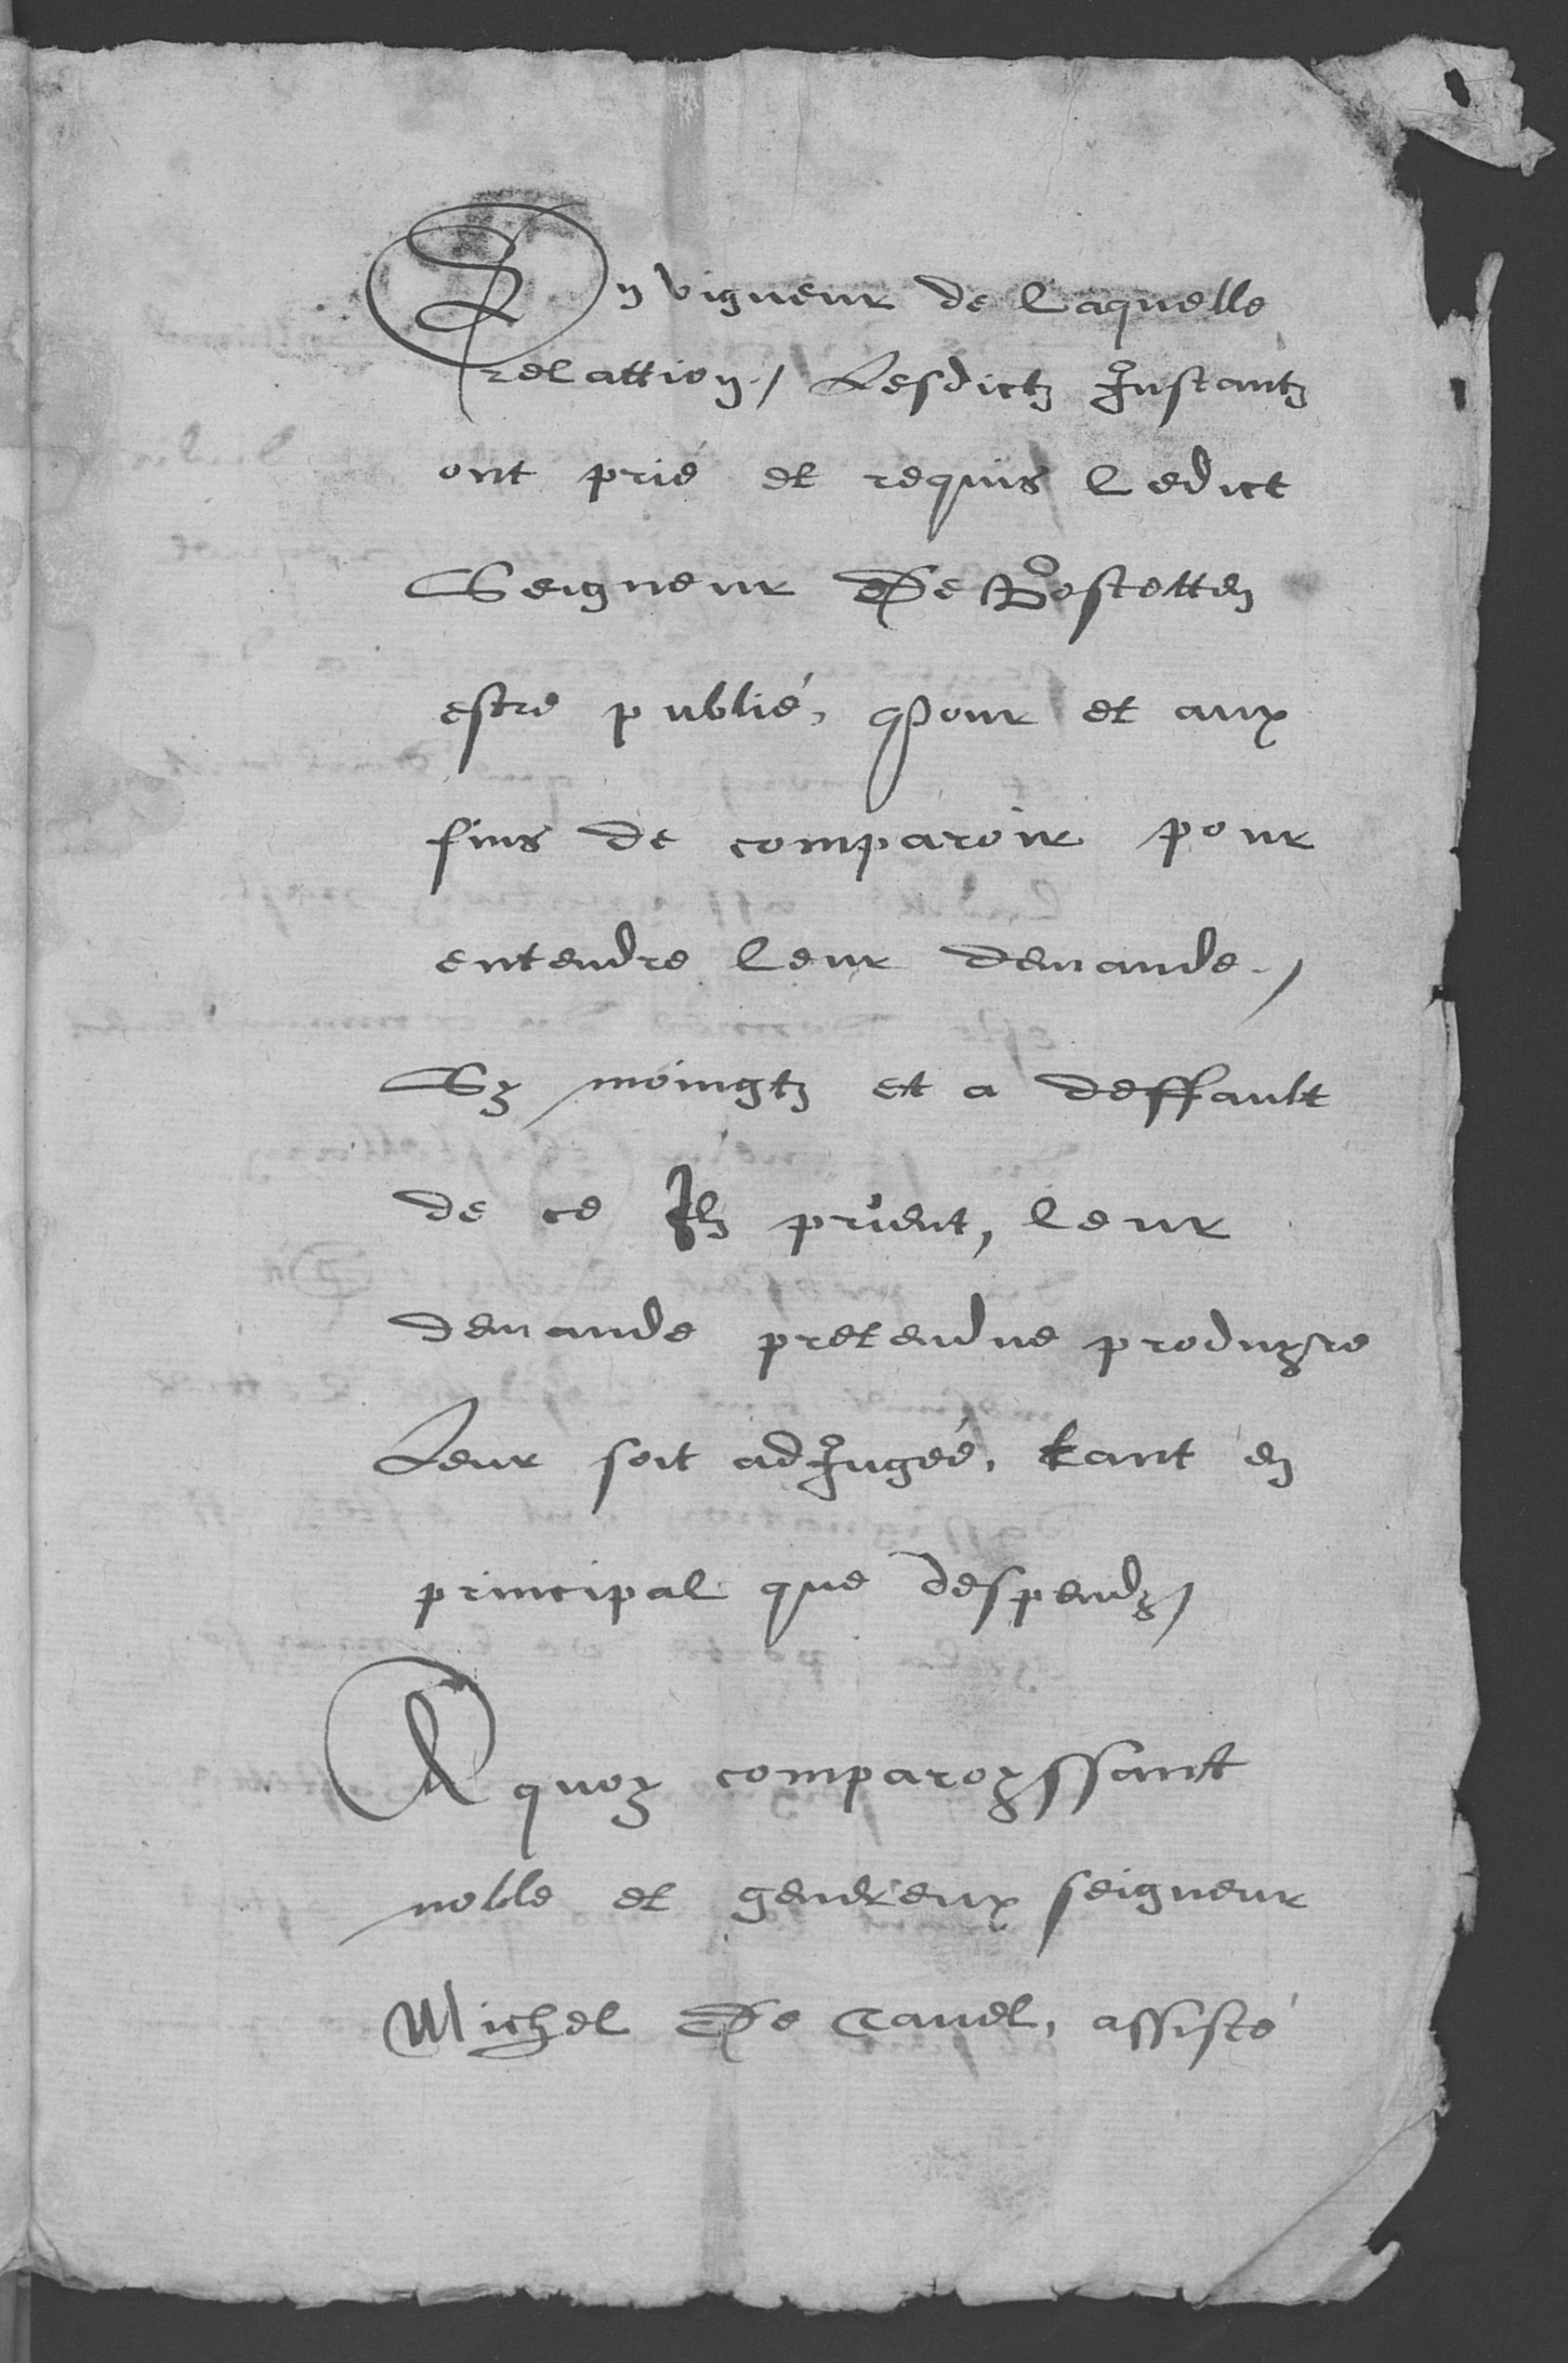 En vigueur de laquelle
relattion / Lesdictz Instantz
ont prié et requis ledict
Seigneur De Bostetten
estre publié, Pour et aux
fins de comparoir pour
entendre leur demande /
Sy moingtz et a deffault
de ce Ilz prient, leur
demande pretendue produyre
Leur soit adIugée, tant en
principal que despendz /
A quoy comparoyssant
noble et genereux seigneur
Michel De Tavel, assisté